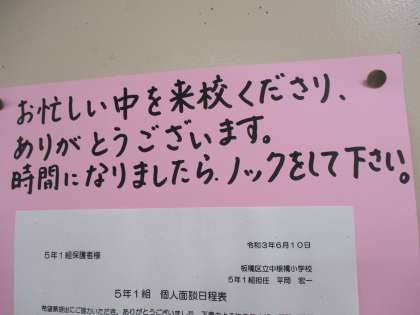 お忙しい中を来校くださり、
ありがとうございます。
時間になりましたら、ノックをして下さい。
令和3年6月10日
5年1組保護者様
板橋区立中根橋小学校
5年1組担任 平岡 宏一
5年1組 個人面談日程表
希望票提出にご協力いただき、ありがとうございました。下表の